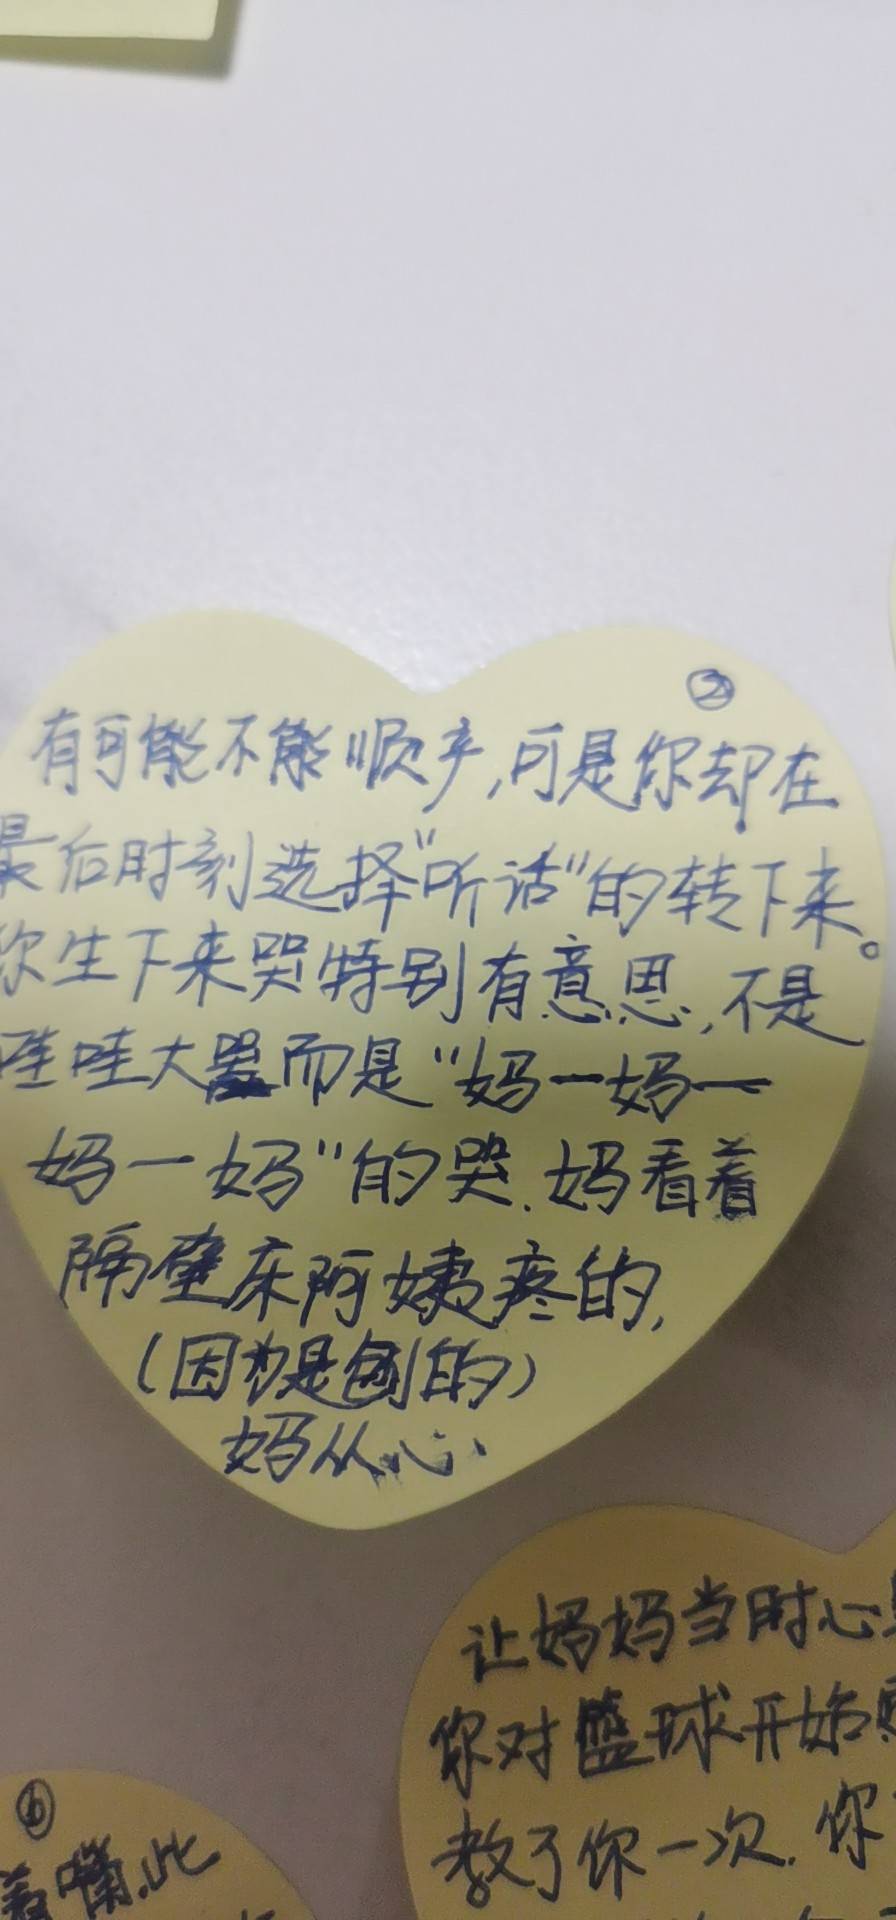 ②
有可能不能顺产,可是你却在
最后时刻选择"听话"的转下来。
你生下来哭特别有意思,不是
哇哇大哭而是"妈一妈一
妈一妈"的哭.妈看着
隔壁床阿姨疼的,
(因为是刨的)
妈从心、
让妈妈当时心
你对篮球开始
教了你一次.你
⑥
着嘴.此